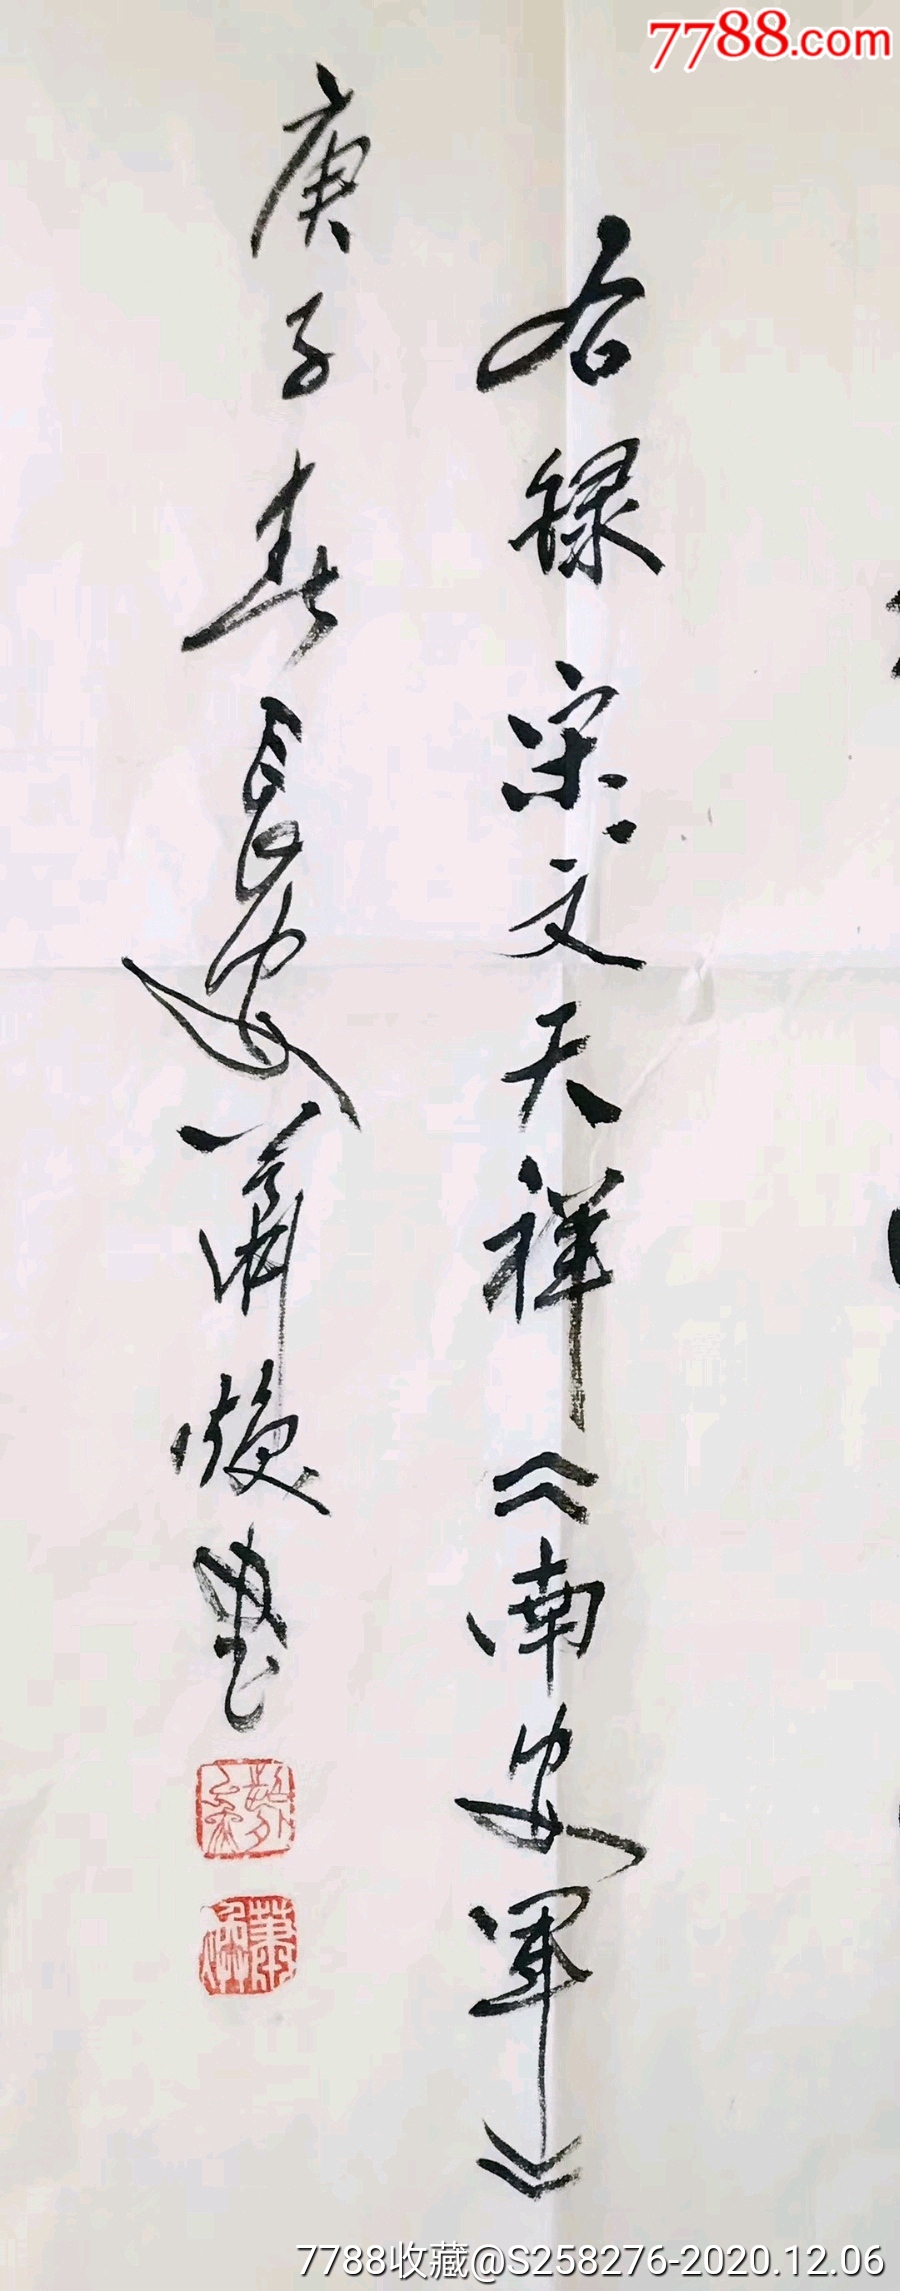 7788.com
右録宋文天祥《南安军》
庚子春長安萧焕
7788收藏@S258276-2020.12.06